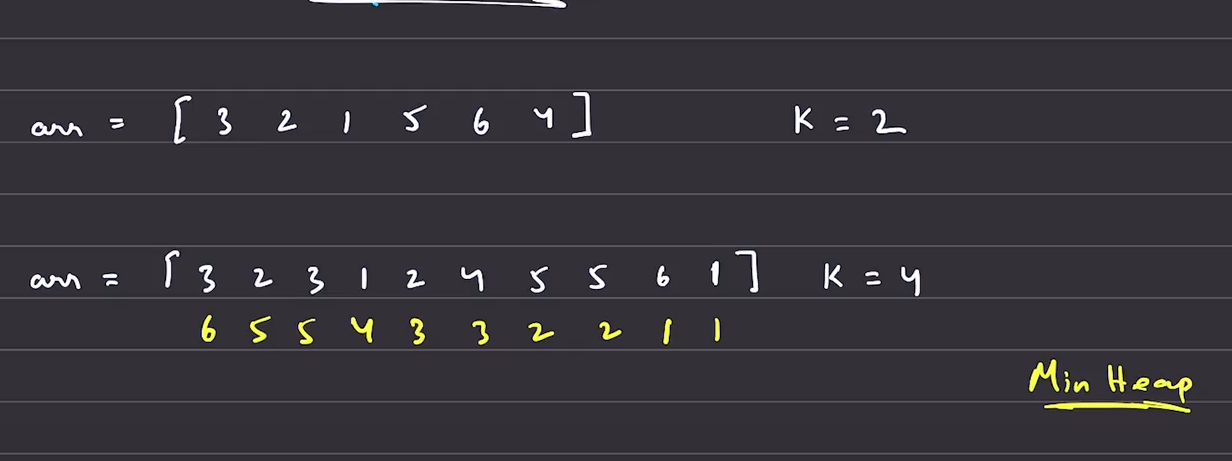 arr = [ 3 2 1 5 6 4 ] K = 2
arr = [ 3 2 3 1 2 4 5 5 6 1 ] K = 4
6 5 5 4 3 3 2 2 1 1
Min Heap